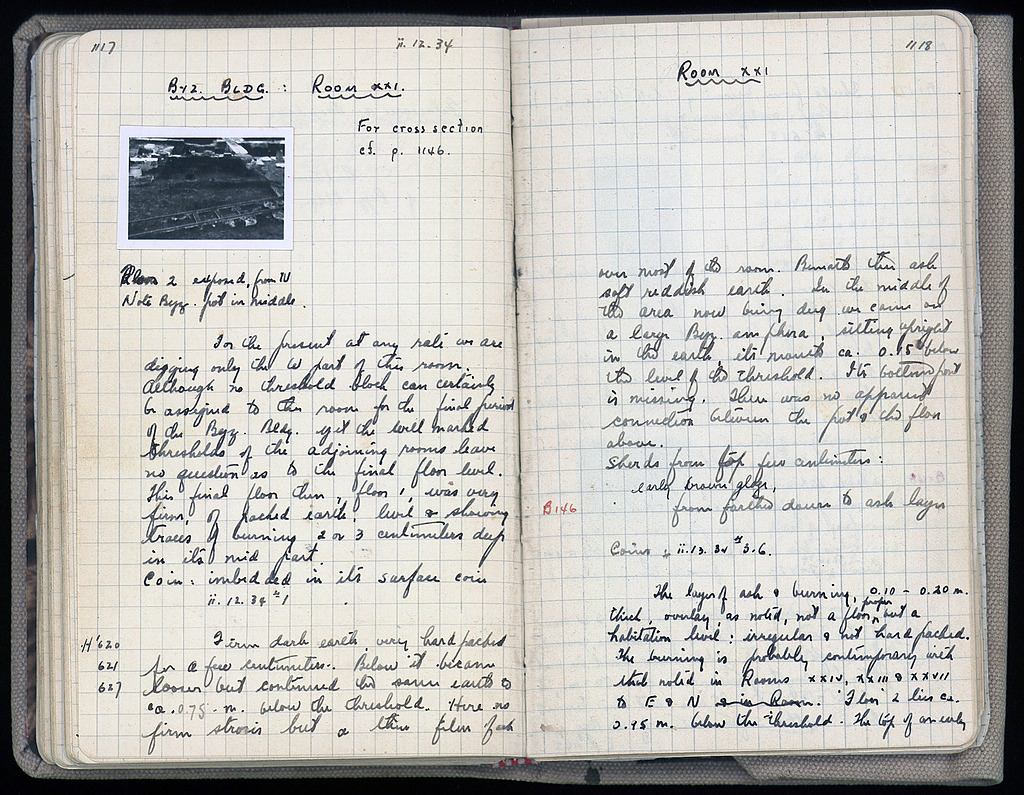 1117
ii.12.34
Byz. Bldg. : Room XXI.
For cross section
cf. p. 1146.
2 exposed, from N
Note Byz. pot in middle.
For the present at any rate we are
digging only the W part of this room.
Although no threshold block can certainly
be assigned to this room for the final period
of the Byz. Bldg. yet the well marked
thresholds of the adjoining rooms leave
no question as to the final floor level.
This final floor then, floor 1, was very
firm, of packed earth, level & showing
traces of burning 2 or 3 centimeters deep
in its mid part.
Coin: imbedded in its surface coin
ii.12.34 #1
H'620
621
627
Firm dark earth, very hard packed
for a few centimeters. Below it became
looser but continued the same earth to
ca. 0.75 m. below the threshold. Here no
firm strosis but a thin film of ash
1118
Room XXI
over most of the room. Beneath this ash
soft reddish earth. In the middle of
the area now being dug we came on
a large Byz. amphora, sitting upright
in the earth, its mouth ca. 0.15 below
the level of the threshold. Its bottom part
is missing. There was no apparent
connection between the pot & the floor
above.
Sherds from top few centimeters:
early brown glaze,
B146
from farther down to ash layer
Coins ii.13.34 #3.6.
The layer of ash & burning, 0.10 - 0.20 m.
thick, overlay, as noted, not a floor proper but a
habitation level: irregular & not hard packed.
The burning is probably contemporary with
that noted in Rooms XXIV, XXIII & XXVII
to E & N. Floor 2 lies ca.
0.95 m. below the threshold. The top of an early